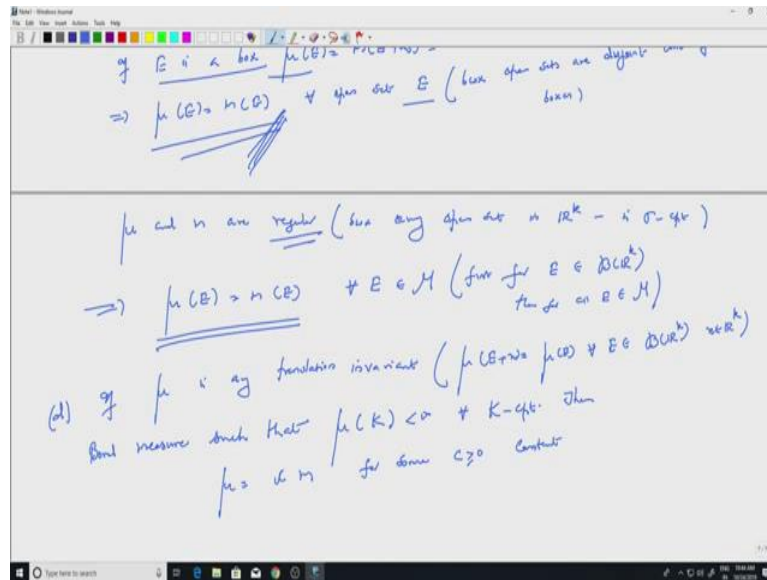 Note1 - Windows Journal
File Edit View Insert Actions Tools Help
If E is a box μ(E) = m(E+x) =
=> μ(E) = m(E) ∀ open set E (bcse open sets are disjoint union of boxes)
μ and m are regular (bcse any open set in ℝ^k - is σ-cpt)
=> μ(E) = m(E) ∀ E ∈ M (first for E ∈ B(ℝ^k)
then for all E ∈ M)
(d) If μ is any translation invariant (μ(E+x) = μ(E) ∀ E ∈ B(ℝ^k) x∈ℝ^k)
Borel measure such that μ(K) < ∞ ∀ K-cpt. Then
μ = c m for some c≥0 constant
Type here to search
ENG 10:44 AM